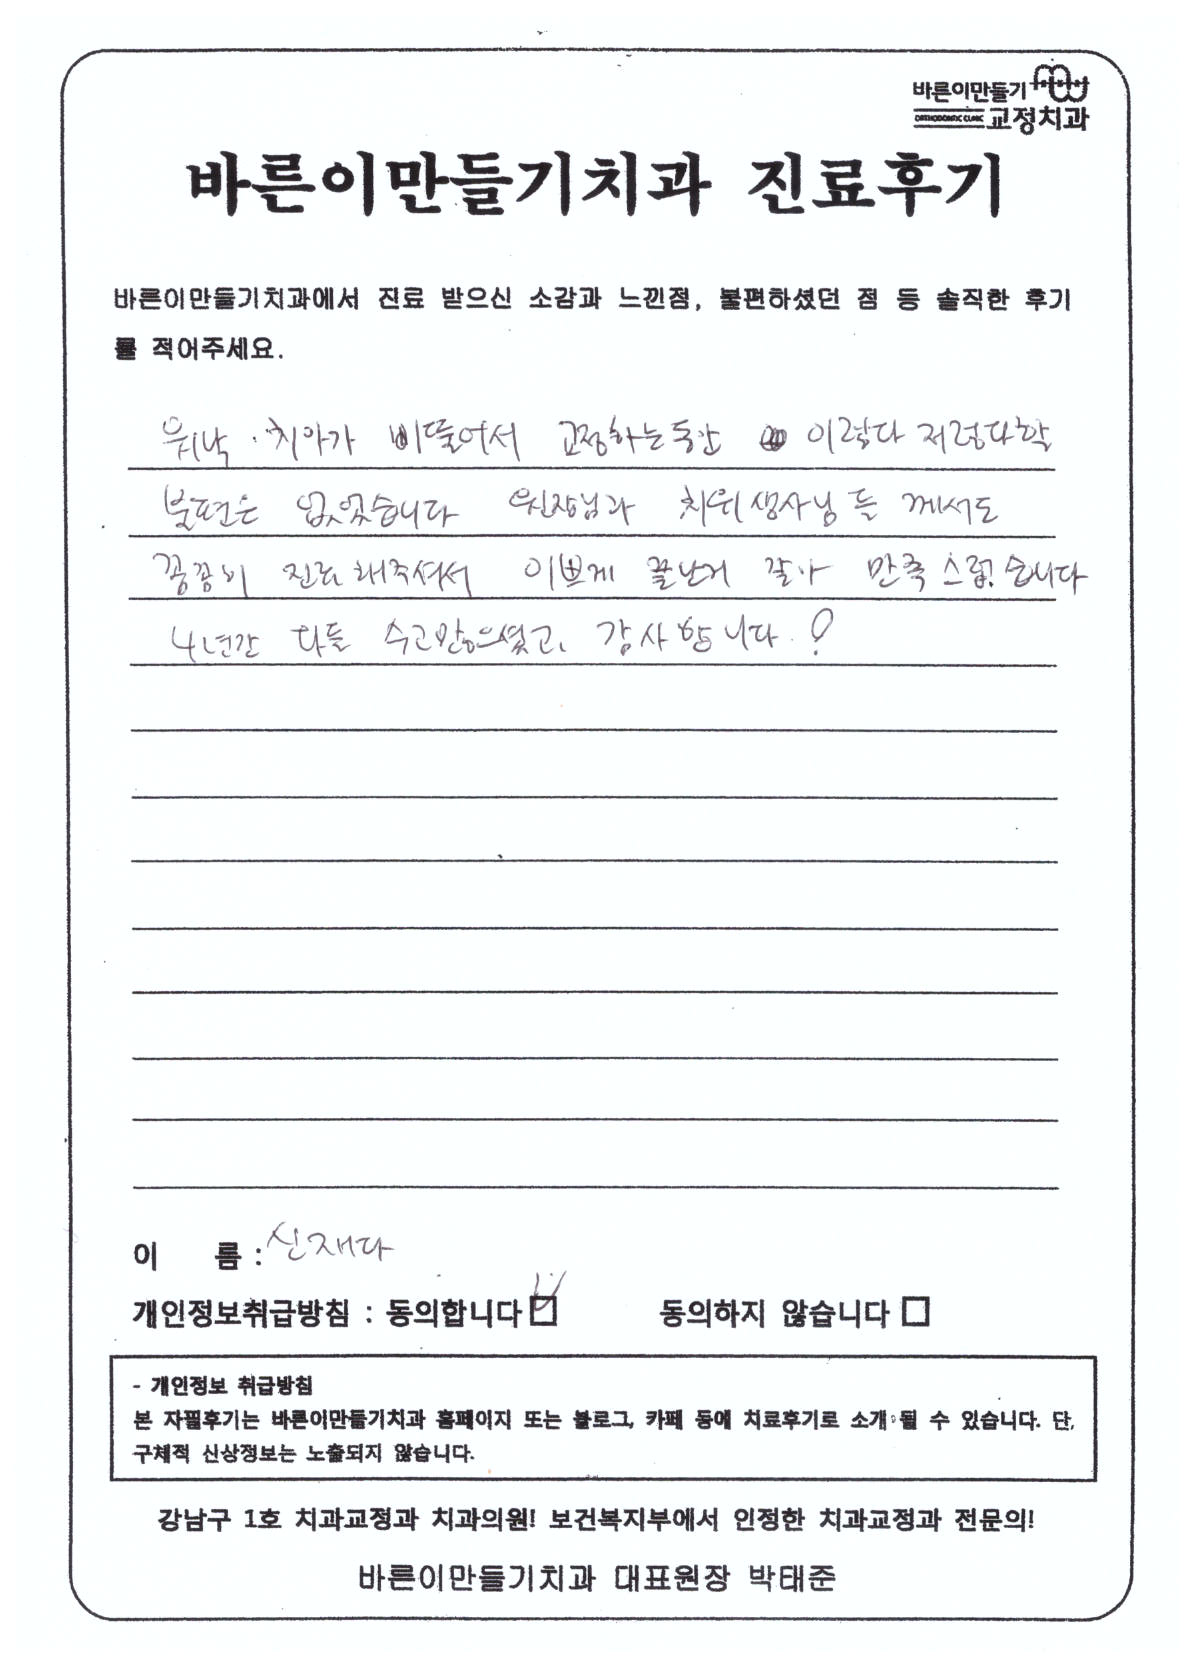 바른이만들기
ORTHODONTIC CLINIC 교정치과
바른이만들기치과 진료후기
바른이만들기치과에서 진료 받으신 소감과 느낀점, 불편하셨던 점 등 솔직한 후기
를 적어주세요.
워낙 치아가 비뚤어서 교정하는동안 이렇다 저렇다할
불편은 없었습니다 원장님과 치위생사님들 께서도
꼼꼼히 진료해주셔서 이쁘게 끝난거 같아 만족스럽습니다
4년간 다들 수고많으셨고, 감사합니다!
이 름 : 신재다
개인정보취급방침 : 동의합니다 동의하지 않습니다
- 개인정보 취급방침
본 자필후기는 바른이만들기치과 홈페이지 또는 블로그, 카페 등에 치료후기로 소개 될 수 있습니다. 단,
구체적 신상정보는 노출되지 않습니다.
강남구 1호 치과교정과 치과의원! 보건복지부에서 인정한 치과교정과 전문의!
바른이만들기치과 대표원장 박태준